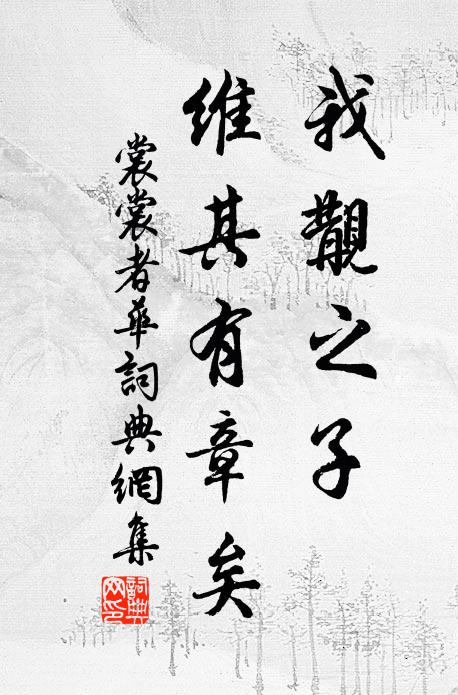 我覯之子
維其有章矣
裳裳者華詞典網集